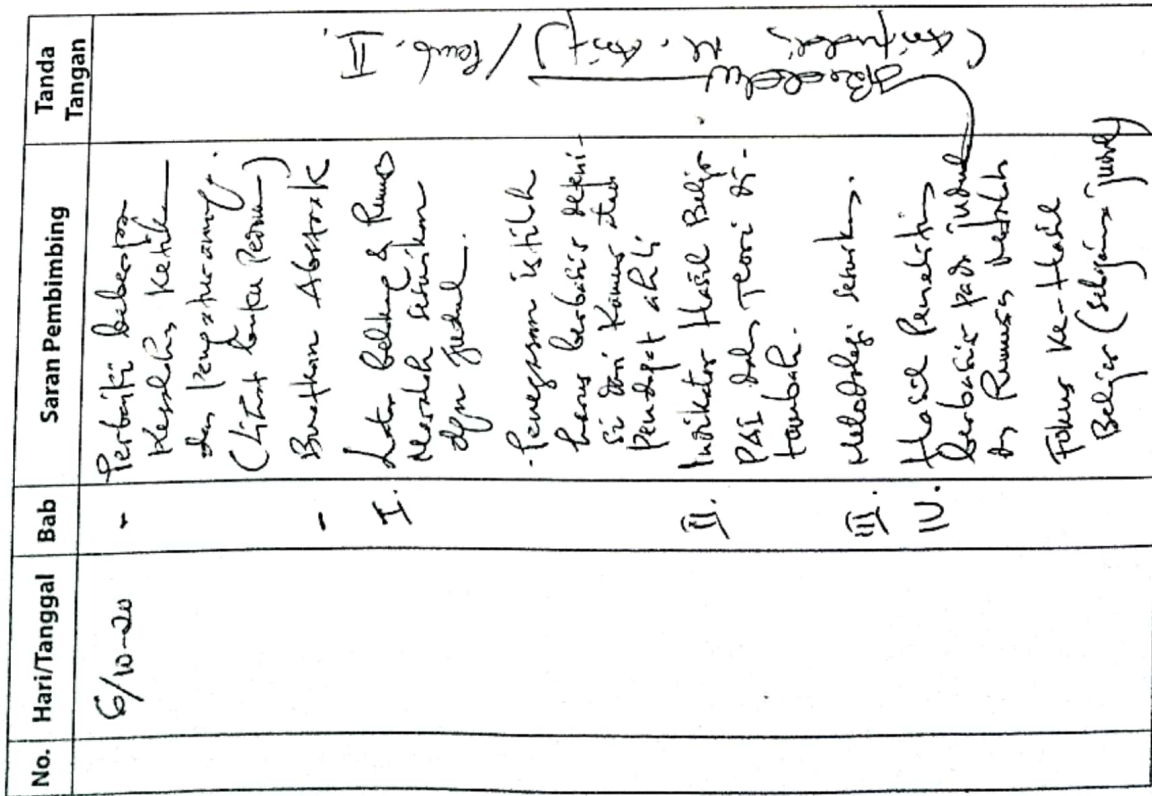 No. Hari/Tanggal Bab Saran Pembimbing Tanda Tangan
6/10-20
- Perbaiki beberapa
Kesalahan Ketik
dan Pengetikannya.
(Lihat buku Pedoman)
- Buatkan Abstrak
I. Latar belakang & Rumus
Masalah sesuaikan
dgn Judul.
- Penegasan istilah
harus berbasis defini-
si dari Kamus atau
Pendapat ahli
II. Indikator Hasil Belajar
PAI dalam Teori di-
tambah.
III. Metodologi sesuaikan.
IV. Hasil Penelitian
berbasis pada judul
dg Rumusan Masalah
Fokus Ke-Hasil
Belajar (sebagaimana judul)
/ Pemb. II.